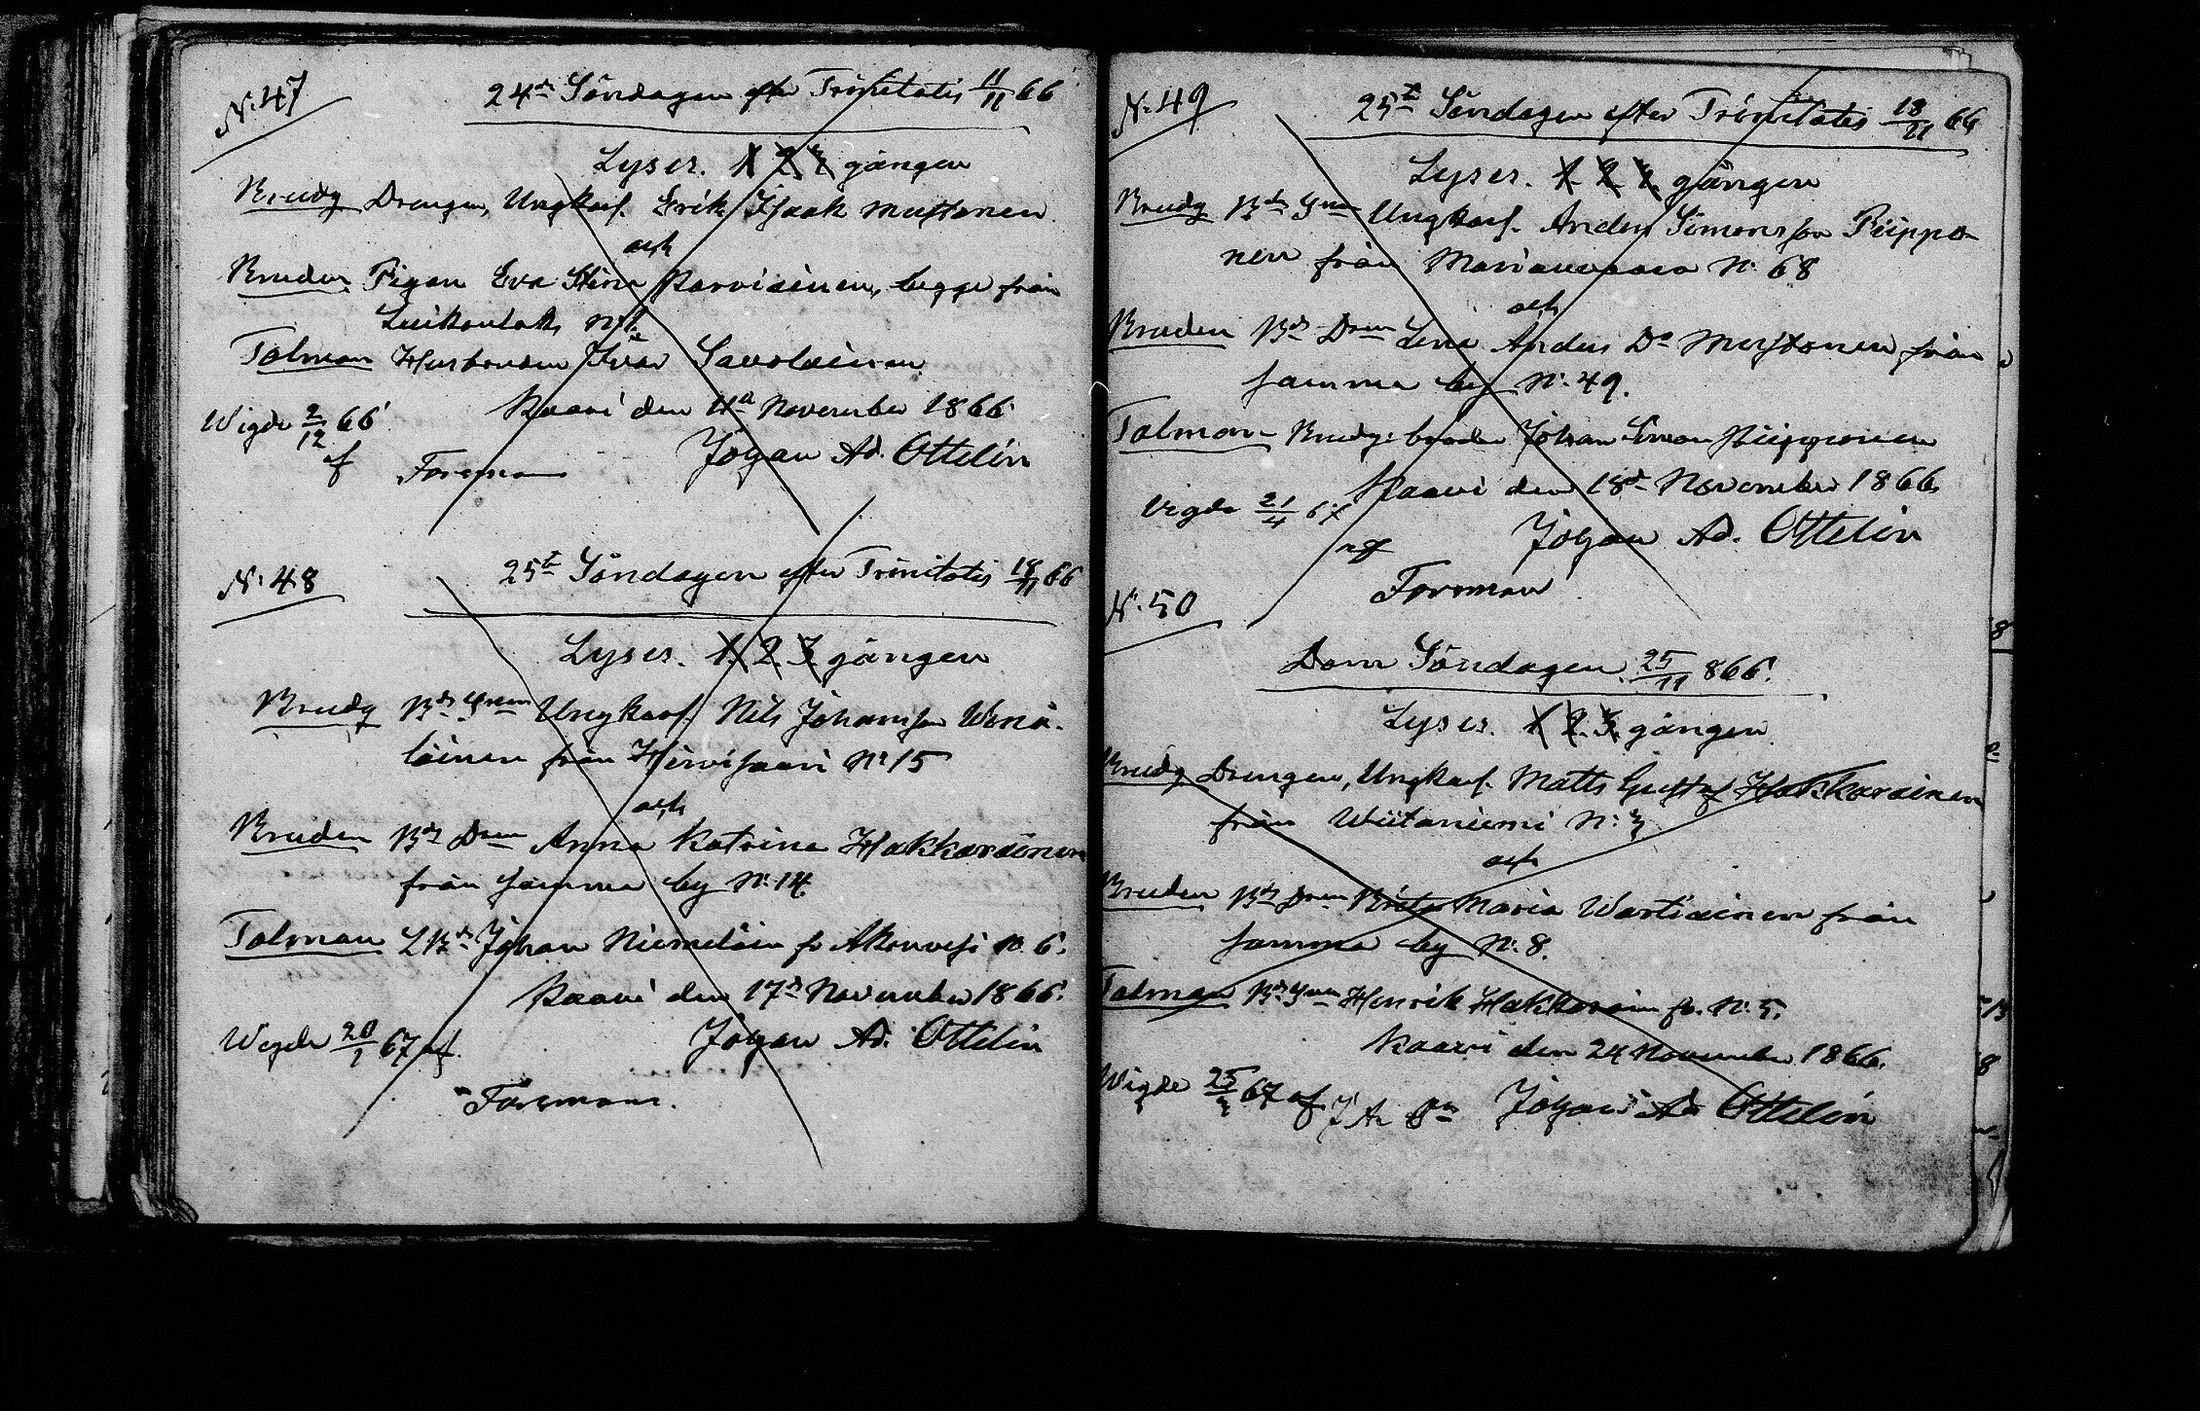 N:47
24de Söndagen efter Trinitatis 11/11 66
Lyses. 1 2 3 gången
Brudg Drengen, Ungkarl. Erik Isaak Mustonen
och
Bruden Pigan Eva Stina Karviainen, begge från
Luikonlaks N:1.
Talman Husbonden Ivar Savolainen
Kaavi den 11te November 1866
Wigde 2/12 66
af
Johan Ad. Ottelin
Forsman
N:48
25te Söndagen efter Trinitatis 18/11 66
Lyses. 1. 2. 3. gången
Brudg Bds Sonen Ungkarl. Nils Johansson Wenä-
läinen från Hirvisaari N:15
och
Bruden Bds Dren Anna Katrina Hakkarainen
från samma by N:14.
Talman LBd Johan Niemeläin fr Akonvesi N. 6.
Kaavi den 17de November 1866.
Wigde 20/1 67 af
Johan Ad. Ottelin
Forsman.
N:49
25te Söndagen efter Trinitatis 18/11 66
Lyses. 1. 2. 3. gången
Brudg Bds Sonen Ungkarl. Anders Simonsson Piippo-
nen från Marianvaara N:68
och
Bruden Bds Dren Lena Anders Dr Mustonen från
samma by N:49.
Talman Brudgs broder Johan Simon Piipponen
Kaavi den 18de November 1866
Vigde 21/4 67
af
Johan Ad. Ottelin
Forsman
N:50
Dom Söndagen 25/11 866.
Lyses. 1 2. 3. gången
Brudg Drengen, Ungkarl. Matts Gustaf Hakkarainen
från Wiitaniemi N:3
och
Bruden Bds Dren Brita Maria Wartiainen från
samma by N:8.
Talman Bds Sonen Henrik Hakkarain fr. N:5.
Kaavi den 24 November 1866.
Wigde 25/3 67 af J A
Johan Ad Ottelin